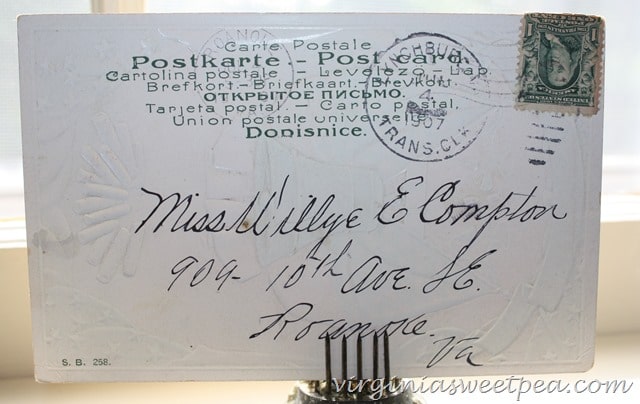 Carte Postale
Postkarte. - Post card.
Cartolina postale - Levelező-Lap.
Brefkort.-Briefkaart.-Brevkort.
ОТКРЫТОЕ ПИСЬМО.
Tarjeta postal. - Carto postal.
Union postale universelle.
Dopisnice.
LYNCHBURG
4
1907
TRANS. CLK
Miss Willye E Compton
909- 10th Ave. S.E.
Roanoke.
Va
S. B. 258.
virginiasweetpea.com